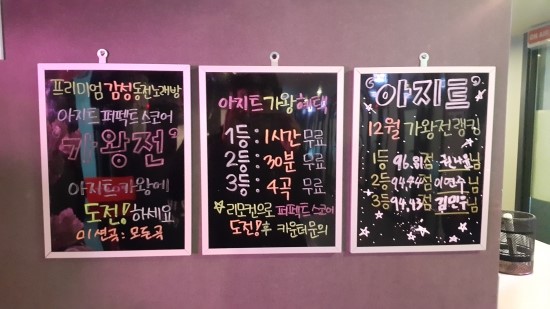 프리미엄 감성동전노래방
아지트 퍼펙트스코어
가왕전
아지트가왕에
도전! 하세요
미션곡: 모든곡
아지트 가왕혜택
1등: 1시간 무료
2등: 30분 무료
3등: 4곡 무료
☆리모컨으로 퍼펙트스코어
도전!후 카운터문의
"아지트"
12월 가왕전랭킹
1등 96.81점 님
2등 94.94점 이연수님
3등 94.43점 김민수님